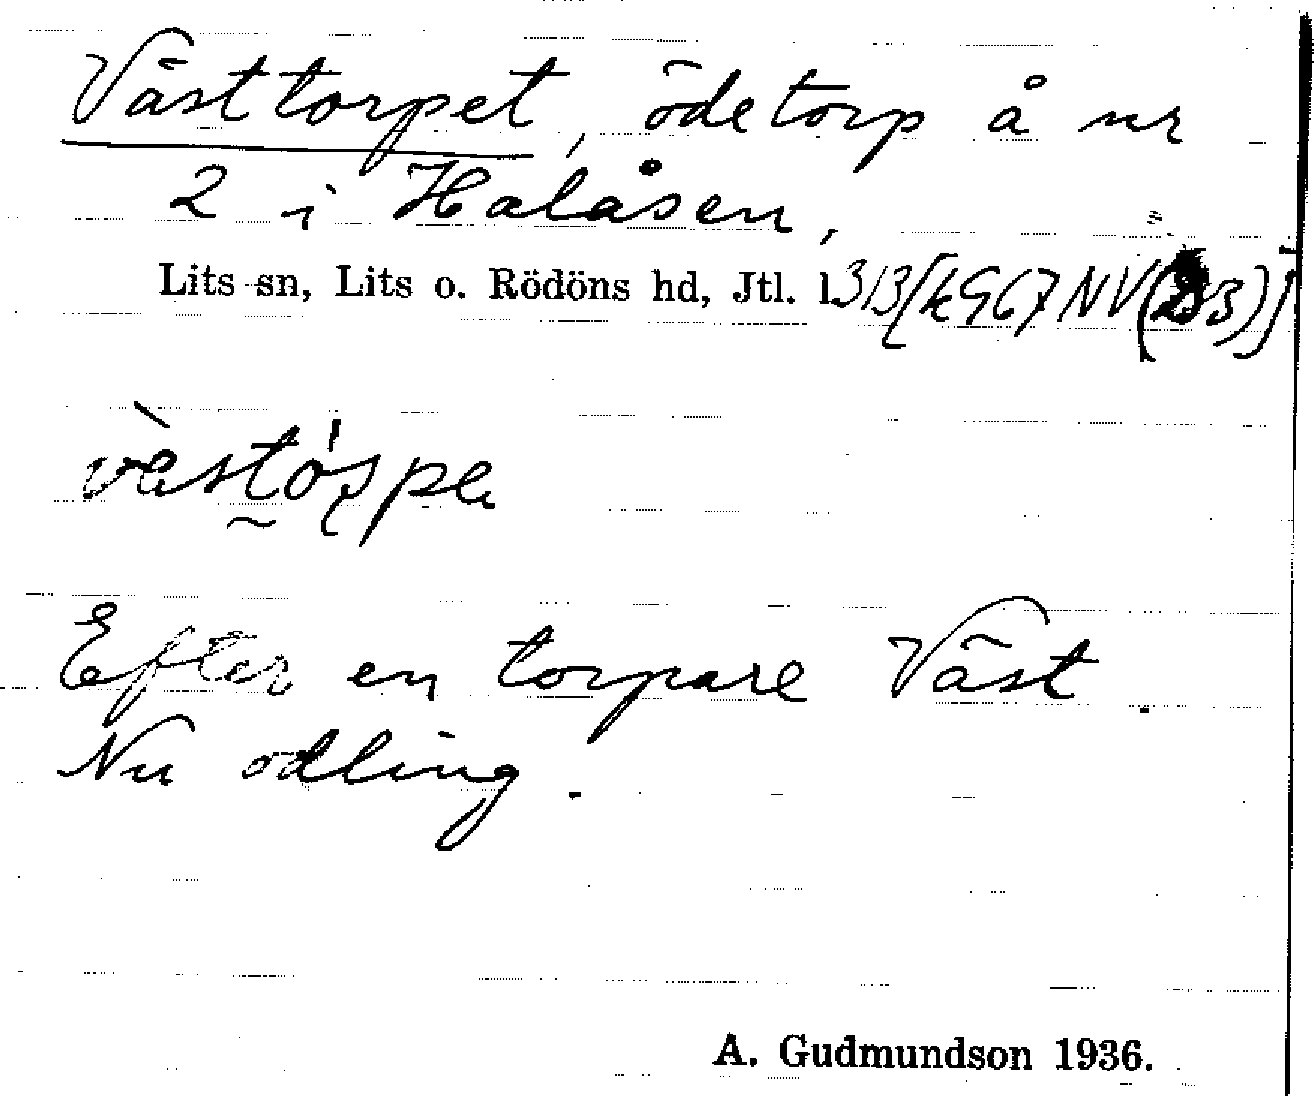 Västtorpet, ödetorp å nr
2 i Halåsen,
Lits sn, Lits o. Rödöns hd, Jtl. l.
Efter en torpare Väst.
Nu odling.
A. Gudmundson 1936.